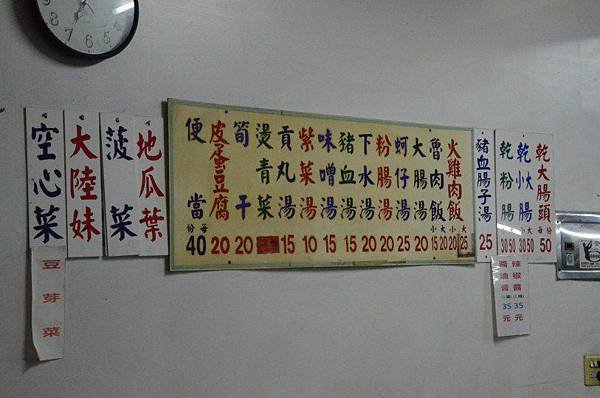 乾大腸頭 每份 50
乾小大腸 小大 30 50
乾粉腸 30 50
豬血腸子湯 25
火雞肉飯 小大 20 25
魯肉飯 小大 15 20
大腸湯 20
蚵仔湯 25
粉腸湯 20
下水湯 20
豬血湯 15
味噌湯 15
紫菜湯 10
貢丸湯 15
燙青菜
筍干 20
皮蛋豆腐 20
便當 每份 40
地瓜葉
菠菜
大陸妹
空心菜
豆芽菜
辣椒醬 35元
醬油膏 35元